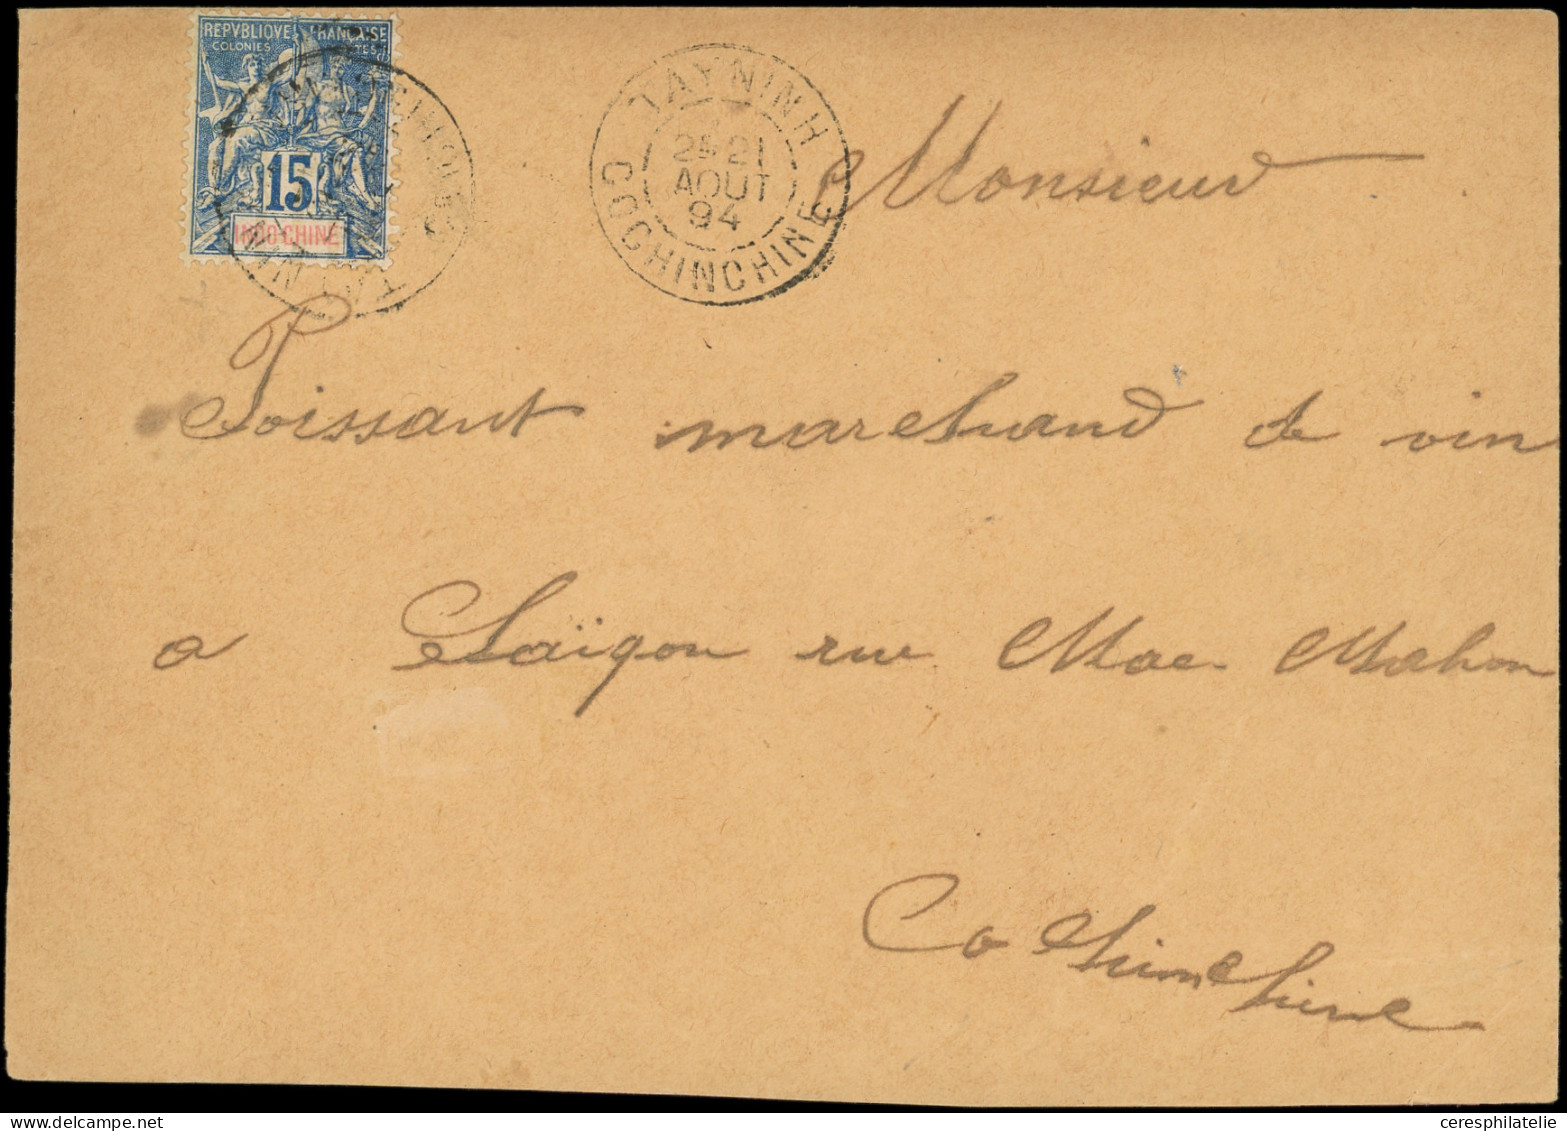 REPVBLIQVE FRANÇAISE
COLONIES POSTES
15
INDO-CHINE
TAYNINH
2E 21
AOUT
94
COCHINCHINE
Monsieur
Poissant marchand de vin
a Saïgon rue Mac-Mahon
Cochinchine
ceresphilatelie